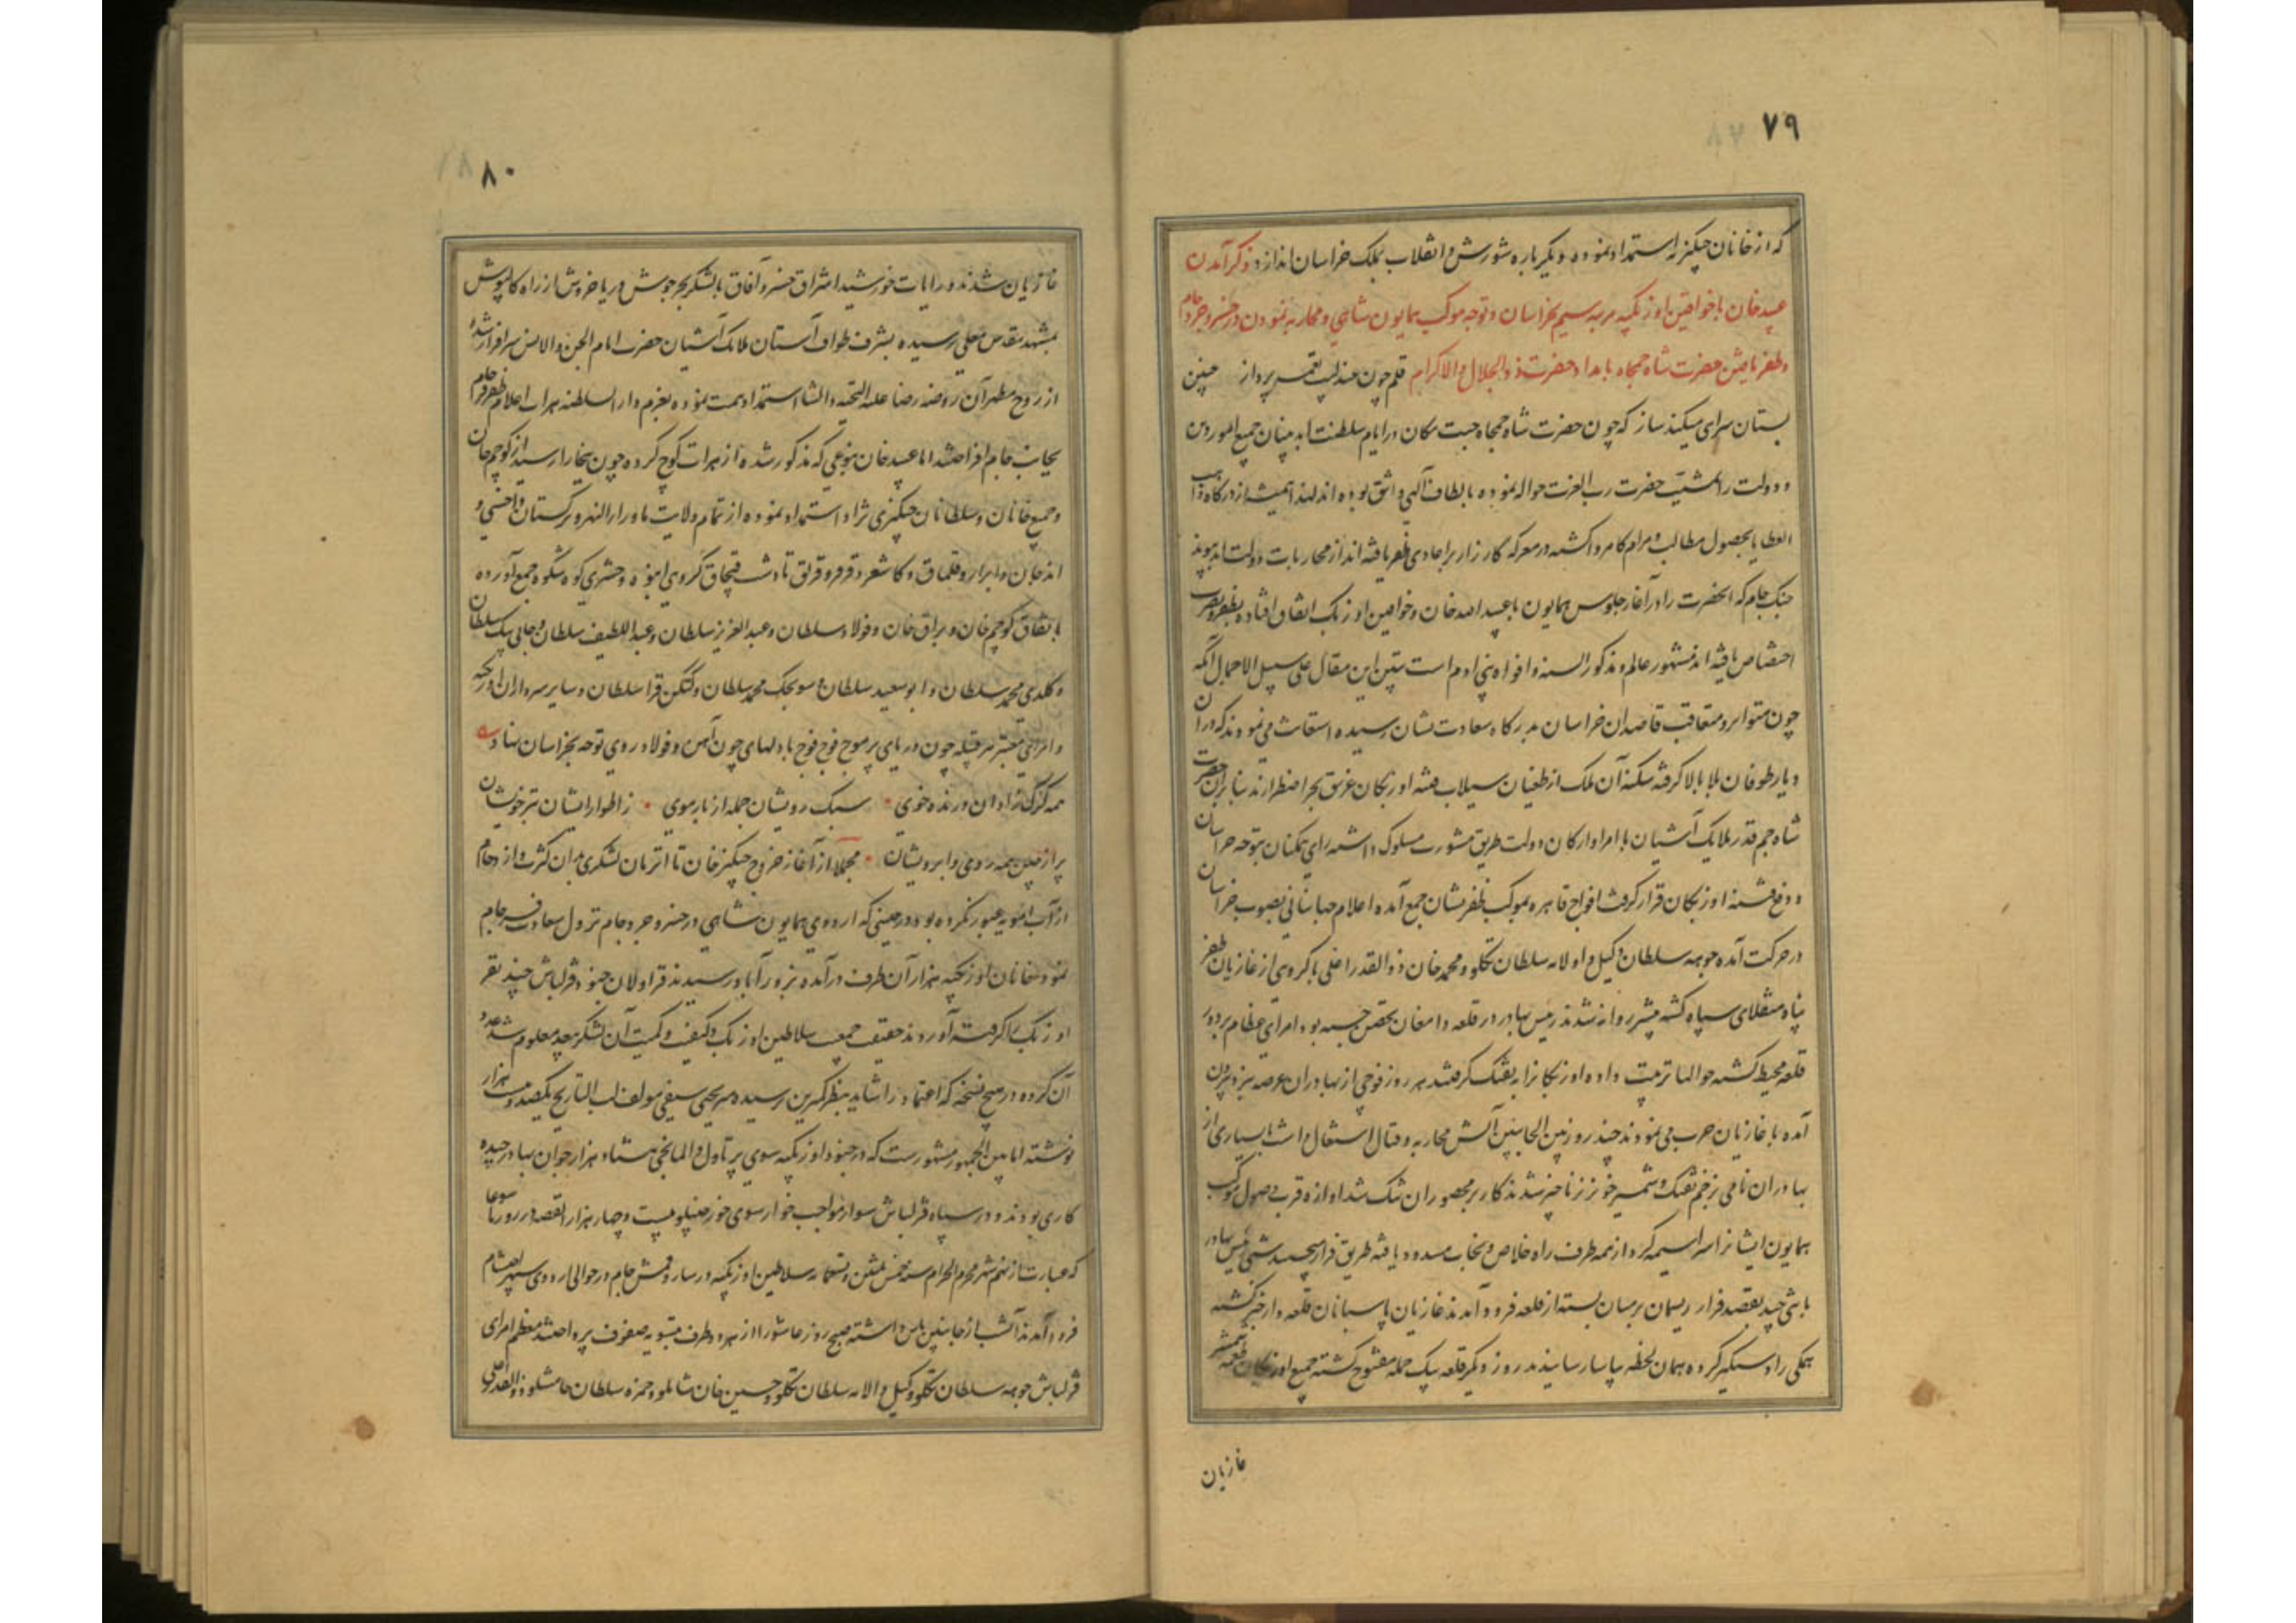 ۷۹
که از خانان چنگیزیه استمداد نموده دیگر باره شورش و انقلاب بملک خراسان اندازد ذکر آمدن
عبید خان با خواقین اوزبکیه مرتبه سیم بخراسان و توجه موکب همایون شاهی و محاربه نمودن در خسرو جرد جام
و ظفر یافتن حضرت شاه جمجاه بامداد حضرت ذو الجلال و الاکرام قلم چون عندلیب نغمه پرداز چنین
بستان سرای میکند ساز که چون حضرت شاه جمجاه جنت مکان در ایام سلطنت ابد بنیان جمیع امور دین
و دولت را بمشیت حضرت رب العزت حواله نموده بالطاف الهی واثق بوده اند لهذا همیشه از درگاه واهب
العطایا بحصول مطالب و مرام کامروا گشته در معرکه کارزار بر اعادی ظفر یافته اند از محاربات دولت ابد پیوند
جنگ جام که آنحضرت را در آغاز جلوس همایون با عبید الله خان و خواقین اوزبک اتفاق افتاده بظفر و نصرت
اختصاص یافته اند مشهور عالم و مذکور السنه و افواه بنی ادم است تبیین این مقال علی سبیل الاجمال آنکه
چون متواتر و متعاقب قاصدان خراسان بدرگاه سعادت نشان رسیده استغاثه می نمودند که در آن
دیار طوفان بلا بالا گرفته سکنه آن ملک از طغیان سیلاب فتنه اوزبکان غریق بحر اضطرارند بنا برآن حضرت
شاه جم قدر ملایک آشیان با امرا و ارکان دولت طریق مشورت مسلوک داشته رای همکنان بتوجه خراسان
و دفع فتنه اوزبکان قرار گرفت افواج قاهره بموکب ظفر نشان جمع آمده اعلام جهانبانی بصوب خراسان
در حرکت آمده جوهه سلطان وکیل و اولامه سلطان تکلو و محمد خان ذوالقدر اغلی با گروهی از غازیان ظفر
پناه منقلای سپاه گشته پیشتر روانه شدند رنیش بهادر در قلعه دامغان تحصن جسته بود امرای عظام بر دور
قلعه محیط گشته حوالها ترتیب داده اوزبکانرا به تفنگ گرفتند هر روز فوجی از بهادران عرصه ستیز بیرون
آمده با غازیان حرب می نمودند چند روز بین الجانبین آتش محاربه و قتال اشتعال داشت بسیاری از
بهادران نامی بزخم تفنگ و شمشیر خونریز ناچیز شدند کار بر محصوران تنگ شد آوازه قرب وصول موکب
همایون ایشانرا سراسیمه کرد از همه طرف راه خلاص و نجات مسدود یافته طریق فرار می جستند شبی رنیش بهادر
با تنی چند بقصد فرار ریسمان بر میان بسته از قلعه فرود آمدند غازیان پاسبانان قلعه دار خبر گشته
همگی را دستگیر کرده همان لحظه بیاسا رسانیدند روز دیگر قلعه بیک حمله مفتوح گشته جمیع اوزبکان طعمه شمشیر
غازیان
۸۰
غازیان شدند و رایات خورشید اشراق خسرو آفاق با لشکر بحر جوش دریا خروش از راه کالپوش
بمشهد مقدس معلی رسیده بشرف طواف آستان ملائک آشیان حضرت امام الجن و الانس سرافراز شده
از روح مطهر آن روضه رضا علیه التحیه و الثنا استمداد همت نموده بعزم دار السلطنه هراة اعلام ظفر فرجام
بجانب جام افراختند اما عبید خان بنوعی که مذکور شد از هرات کوچ کرده چون ببخارا رسید از کوچم خان
و جمیع خانان و سلطانان چنگیزی نژاد استمداد نموده از تمام ولایت ماوراء النهر و ترکستان و اخسی و
اندجان و اترار و قلماق و کاشغر و قرقر و قریق تا دشت قپچاق گروهی انبوه و حشری کوه شکوه جمع آورده
باتفاق کوچم خان و براق خان و فولاد سلطان و عبد العزیز سلطان و عبد اللطیف سلطان و جانی بیک سلطان
و کلدی محمد سلطان و ابو سعید سلطان و سونجک محمد سلطان و کنکن قرا سلطان و سایر سرداران اوزبکیه
و امرای معتبر هر قبیله چون دریای پر موج فوج فوج با دلهای چون آهن و فولاد روی توجه بخراسان نهادند
همه گرگ زادان درنده خوی سبک رویشان جمله از بار موی ز اطوار ایشان بتر خویشان
پر از چین همه روی و ابرویشان مجملا از آغاز خروج چنگیز خان تا آن زمان لشکری بدان کثرت و ازدحام
از آب آمویه عبور نکرده بود در حینی که اردوی همایون شاهی در خسرو جرد جام نزول سعادت فرجام
نمود خانان اوزبکیه هم از آن طرف در آمده بزورآباد رسیدند قراولان جنود قزلباش چند نفر
اوزبک را گرفته آوردند حقیقت جمعیت سلاطین اوزبک و کیفیت و کمیت آن لشکر بیحد معلوم شد عدد
آن گروه در هیچ نسخه که اعتماد را شاید بنظر کمترین نرسیده میر یحیی سیفی مولف لب التاریخ یکصد و بیست هزار
نوشته اما بین الجمهور مشهور است که در جنود اوزبکیه سوی یرتاول و المانجی هشتاد هزار جوان بهادر چیده
کاری بودند و در سپاه قزلباش سوار مواجب خوار سوی خورجینلو بیست و چهار هزار القصه در روز تاسوعا
که عبارت از نهم شهر محرم الحرام سنه خمس ثلثین و تسعمائه سلاطین اوزبکیه در سارو قمش جام در حوالی اردوی سپهر احتشام
فرود آمدند آنشب از جانبین پاس داشته صبح روز عاشورا از هر دو طرف بتسویه صفوف پرداختند معظم امرای
قزلباش جوهه سلطان تکلو وکیل و الامه سلطان تکلو و حسین خان شاملو و حمزه سلطان حامشلو ذوالقدر اغلی